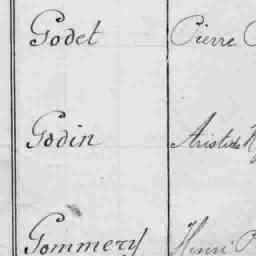 Godet Pierre
Godin Aristide
Gommery Henri